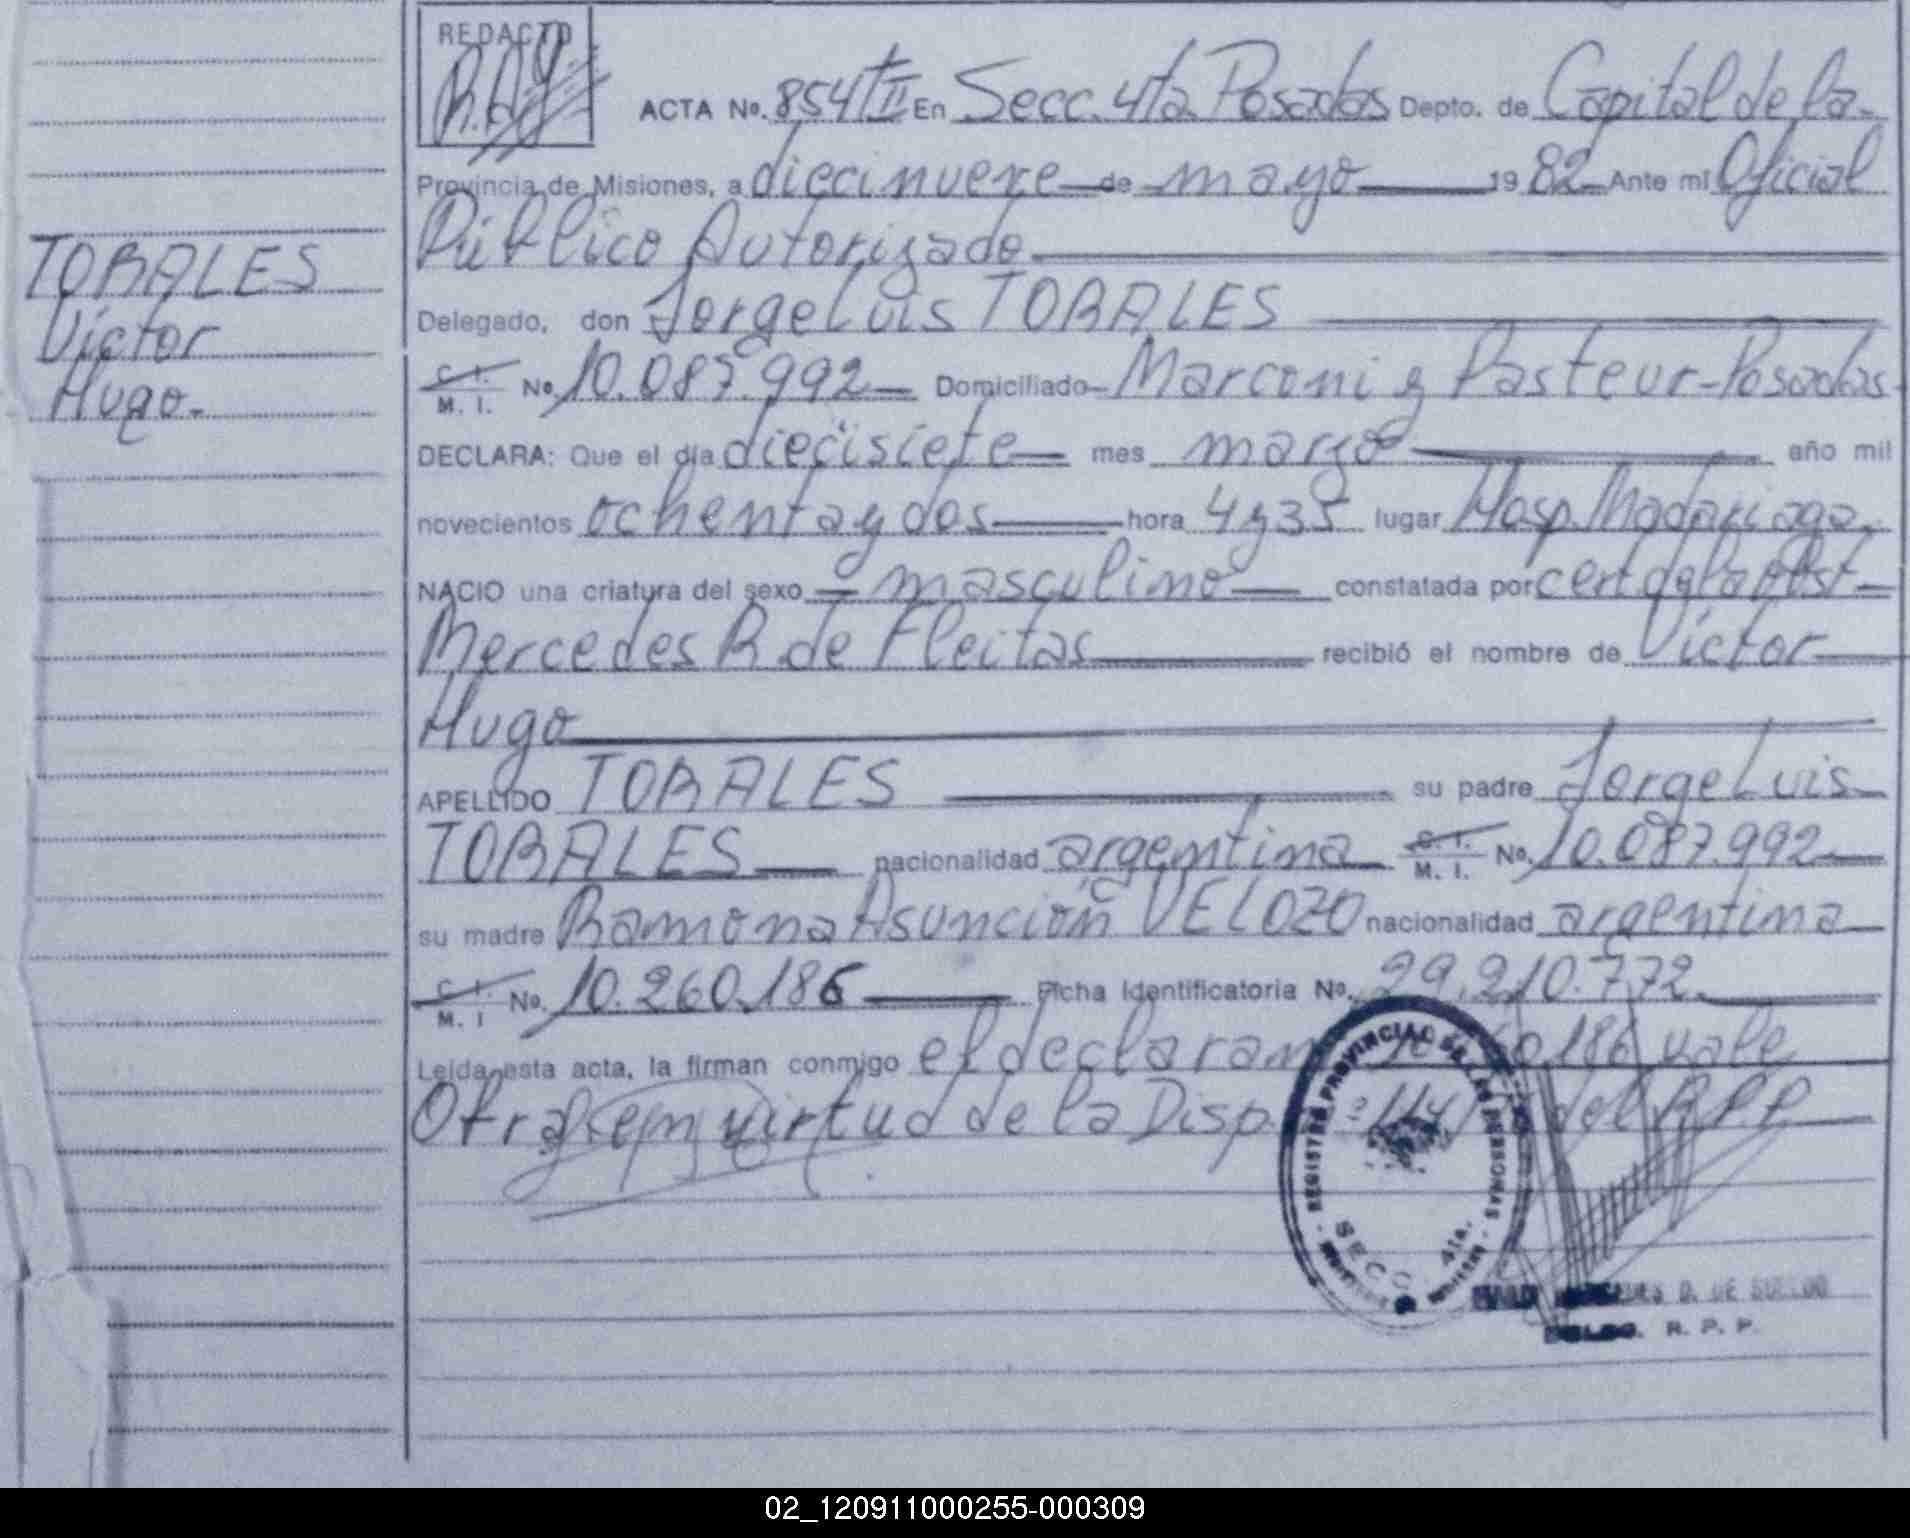 REDACTO
ACTA No. 854 T II En Secc. 4ta Posadas Depto. de Capital de la
Provincia de Misiones, a diecinueve de mayo 1982 Ante mi Oficial
Público Autorizado
TORALES
Víctor
Hugo.
Delegado, don Jorge Luis TORALES
C. I. / M. I. No. 10.087.992 Domiciliado Marconi y Pasteur-Posadas
DECLARA: Que el día diecisiete mes marzo año mil
novecientos ochenta y dos hora 4 y 35 lugar Hosp. Madariaga
NACIO una criatura del sexo masculino constatada por cert. de la obst
Mercedes R. de Fleitas recibió el nombre de Víctor
Hugo
APELLIDO TORALES su padre Jorge Luis
TORALES nacionalidad argentina C. I. / M. I. No. 10.087.992
su madre Ramona Asunción VELOZO nacionalidad argentina
C. I. / M. I No. 10.260.186 Ficha Identificatoria No. 29.210.772
Leída esta acta, la firman conmigo el declaran 186 vale
Otra: en virtud de la Disp. del R.P.P
REGISTRO PROVINCIAL DE LAS PERSONAS
SECC. 4ta.
MISIONES
D. DE SUELDO
DELEG. R. P. P.
02_120911000255-000309